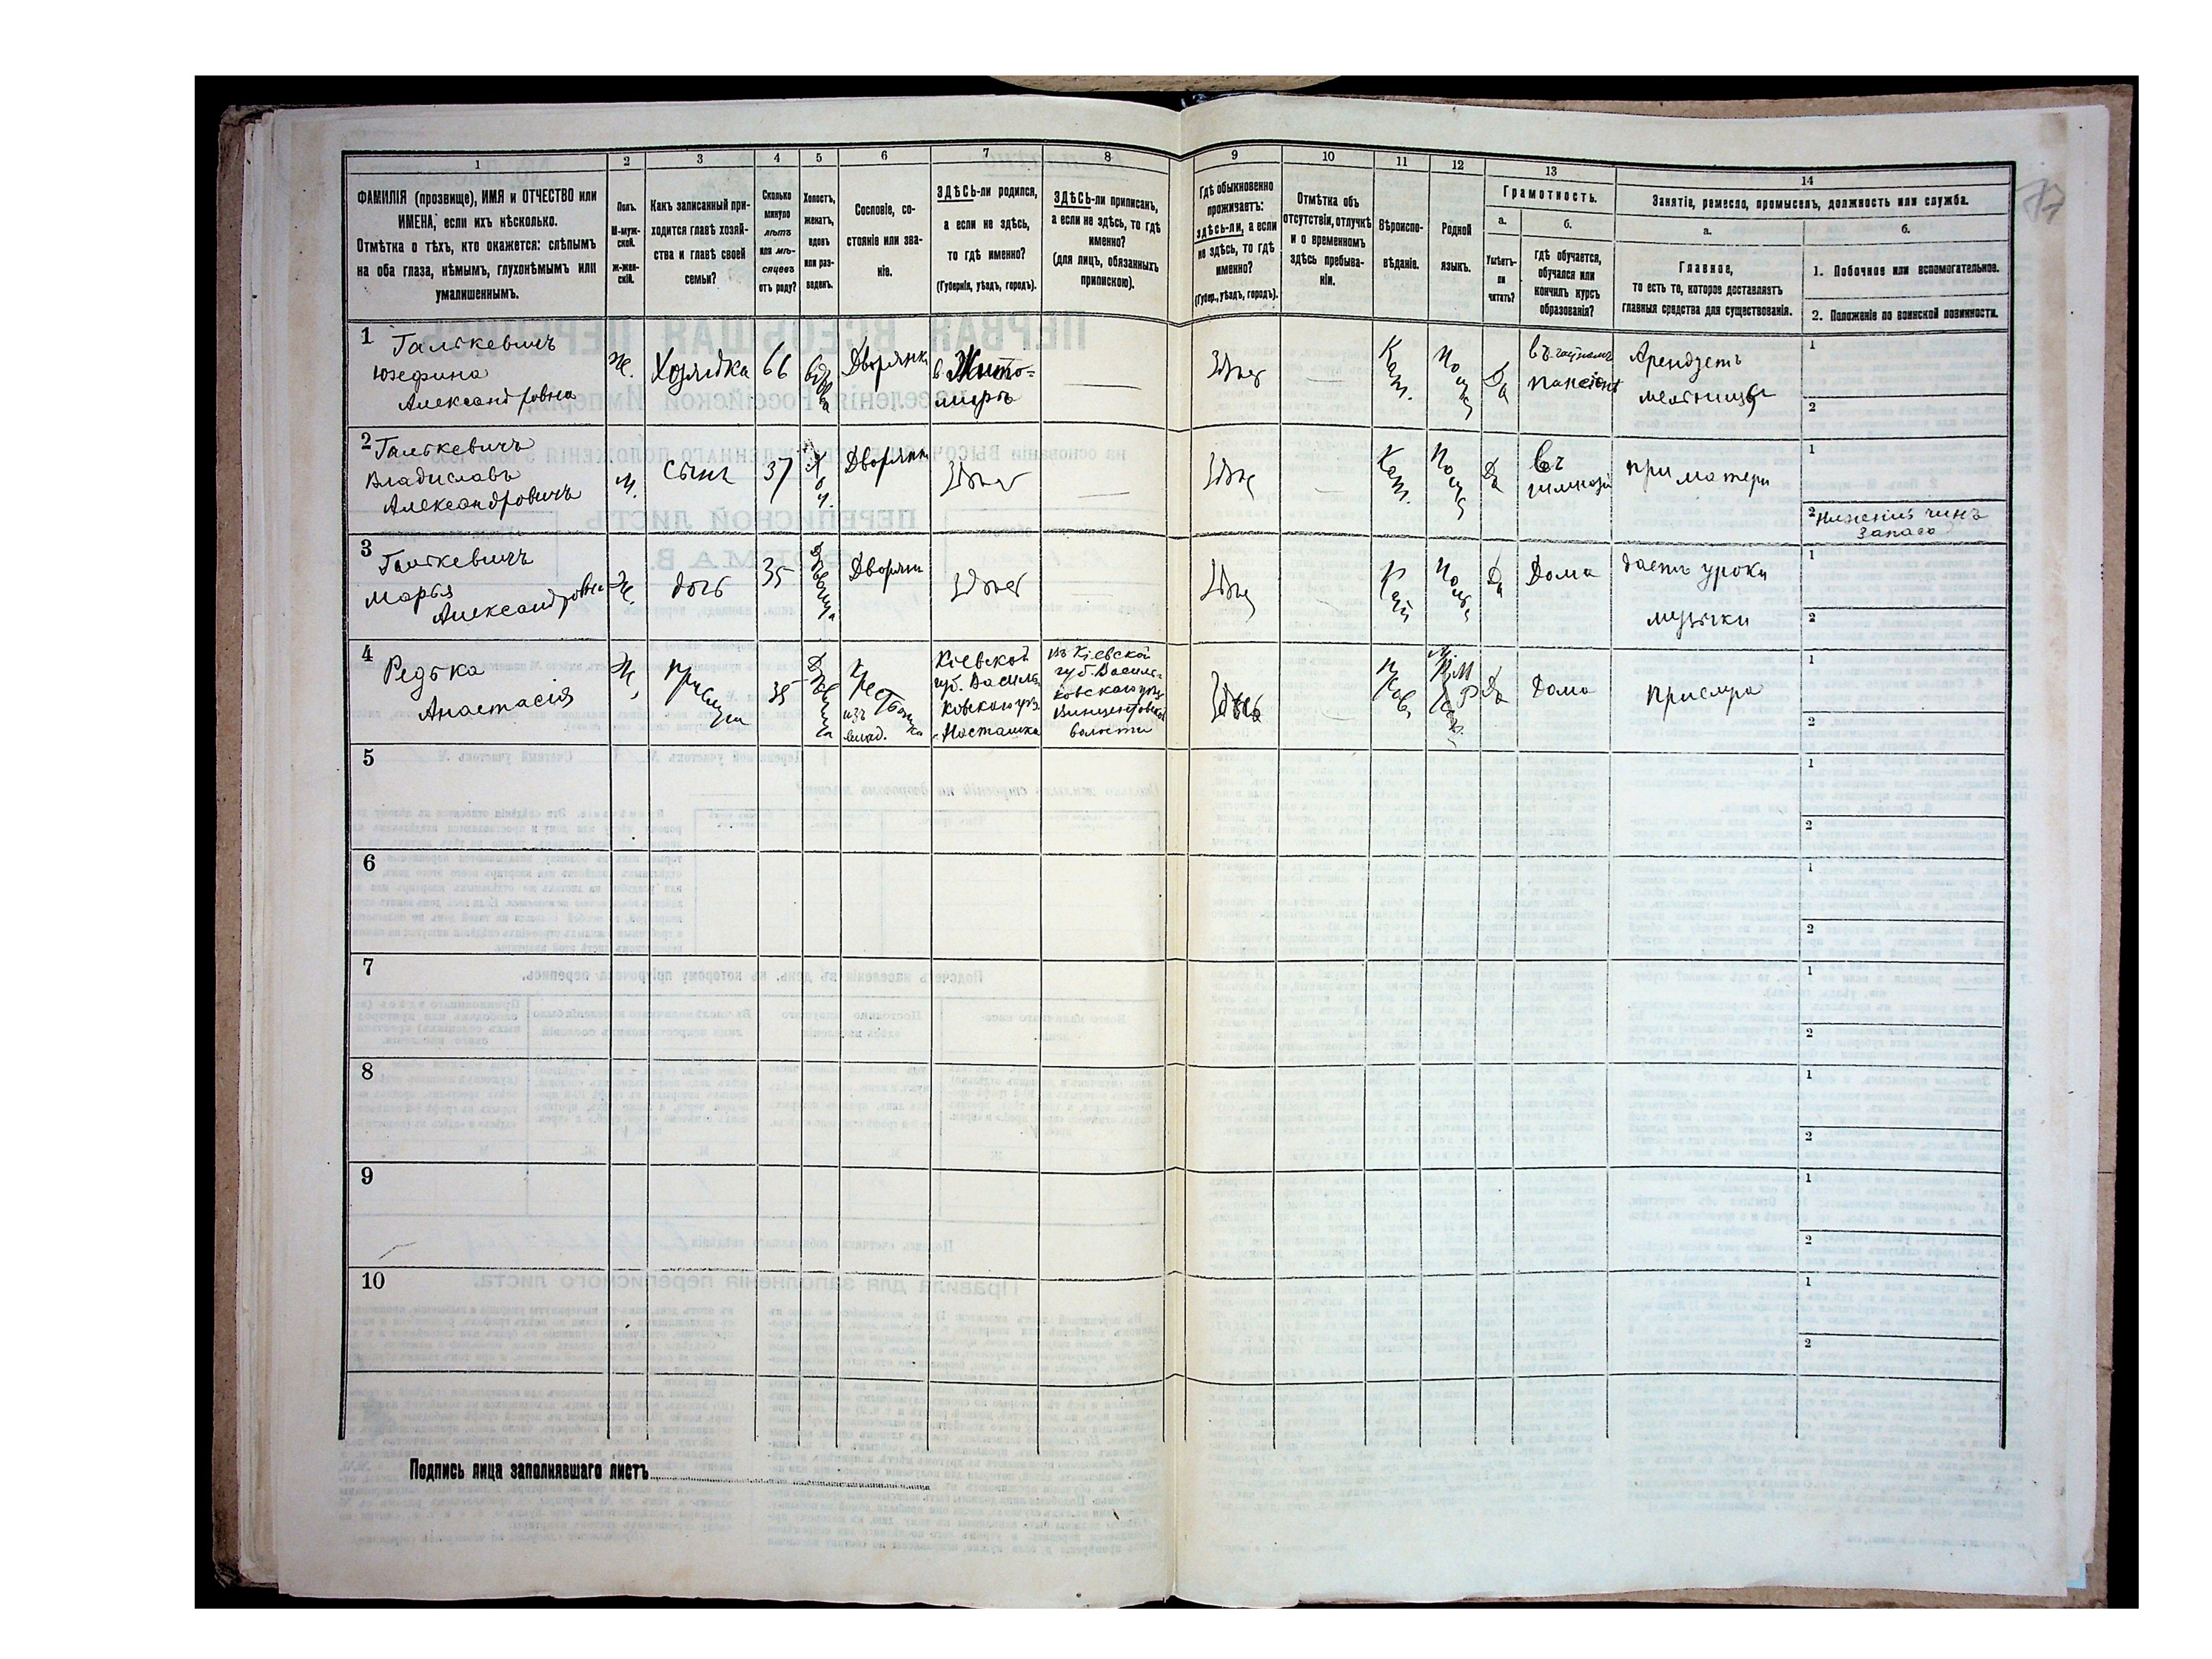 1
2
3
4
5
6
7
8
9
10
11
12
13
14
ФАМИЛІЯ (прозвище), ИМЯ и ОТЧЕСТВО или
ИМЕНА, если ихъ нѣсколько.
Отмѣтка о тѣхъ, кто окажется: слѣпымъ
на оба глаза, нѣмымъ, глухонѣмымъ или
умалишеннымъ.
Полъ.
М-муж-
ской.
Ж-жен-
скій.
Какъ записанный при-
ходится главѣ хозяй-
ства и главѣ своей
семьи?
Сколько
минуло
лѣтъ
или мѣ-
сяцевъ
отъ роду?
Холостъ,
женатъ,
вдовъ
или раз-
веденъ.
Сословіе, со-
стояніе или зва-
ніе.
ЗДѢСЬ-ли родился,
а если не здѣсь,
то гдѣ именно?
(Губернія, уѣздъ, городъ).
ЗДѢСЬ-ли приписанъ,
а если не здѣсь, то гдѣ
именно?
(для лицъ, обязанныхъ
припискою).
Гдѣ обыкновенно
проживаетъ:
здѣсь-ли, а если
не здѣсь, то гдѣ
именно?
(Губер., уѣздъ, городъ).
Отмѣтка объ
отсутствіи, отлучкѣ
и о временномъ
здѣсь пребыва-
ніи.
Вѣроиспо-
вѣданіе.
Родной
языкъ.
Грамотность.
а.
Умѣетъ-
ли
читать?
б.
гдѣ обучается,
обучался или
кончилъ курсъ
образованія?
Занятіе, ремесло, промыселъ, должность или служба.
а.
Главное,
то есть то, которое доставляетъ
главныя средства для существованія.
б.
1. Побочное или вспомогательное.
2. Положеніе по воинской повинности.
1
Галькевичъ
Юзефина
Александровна
Ж.
Хозяйка
66
вдова
Дворянка
в Жито-
миръ
Здѣсь
Кат.
Да
въ частномъ
пансіонѣ
Арендуетъ
мельницу
1
2
2
Галькевичъ
Владиславъ
Александровичъ
М.
Сынъ
37
Хол.
Дворянин
Здѣсь
Здѣсь
Кат.
Да
въ
гимназіи
при матери
1
2 Нижній чинъ
запаса
3
Галькевичъ
Марья
Александровна
Ж.
дочь
35
Дѣвица
Дворянка
Здѣсь
Здѣсь
Кат.
Да
Дома
даетъ уроки
музыки
1
2
4
Редька
Анастасія
Ж.
прислуга
35
Дѣвица
Крестьянка
изъ
владѣ.
Кіевской
губ. Василь-
ковского уѣз.
Въ Кіевской
губ. Василь-
ковскаго уѣз.
волости
Здѣсь
Прав.
Да
Дома
Прислуга
1
2
5
1
2
6
1
2
7
1
2
8
1
2
9
1
2
10
1
2
Подпись лица заполнявшаго листъ